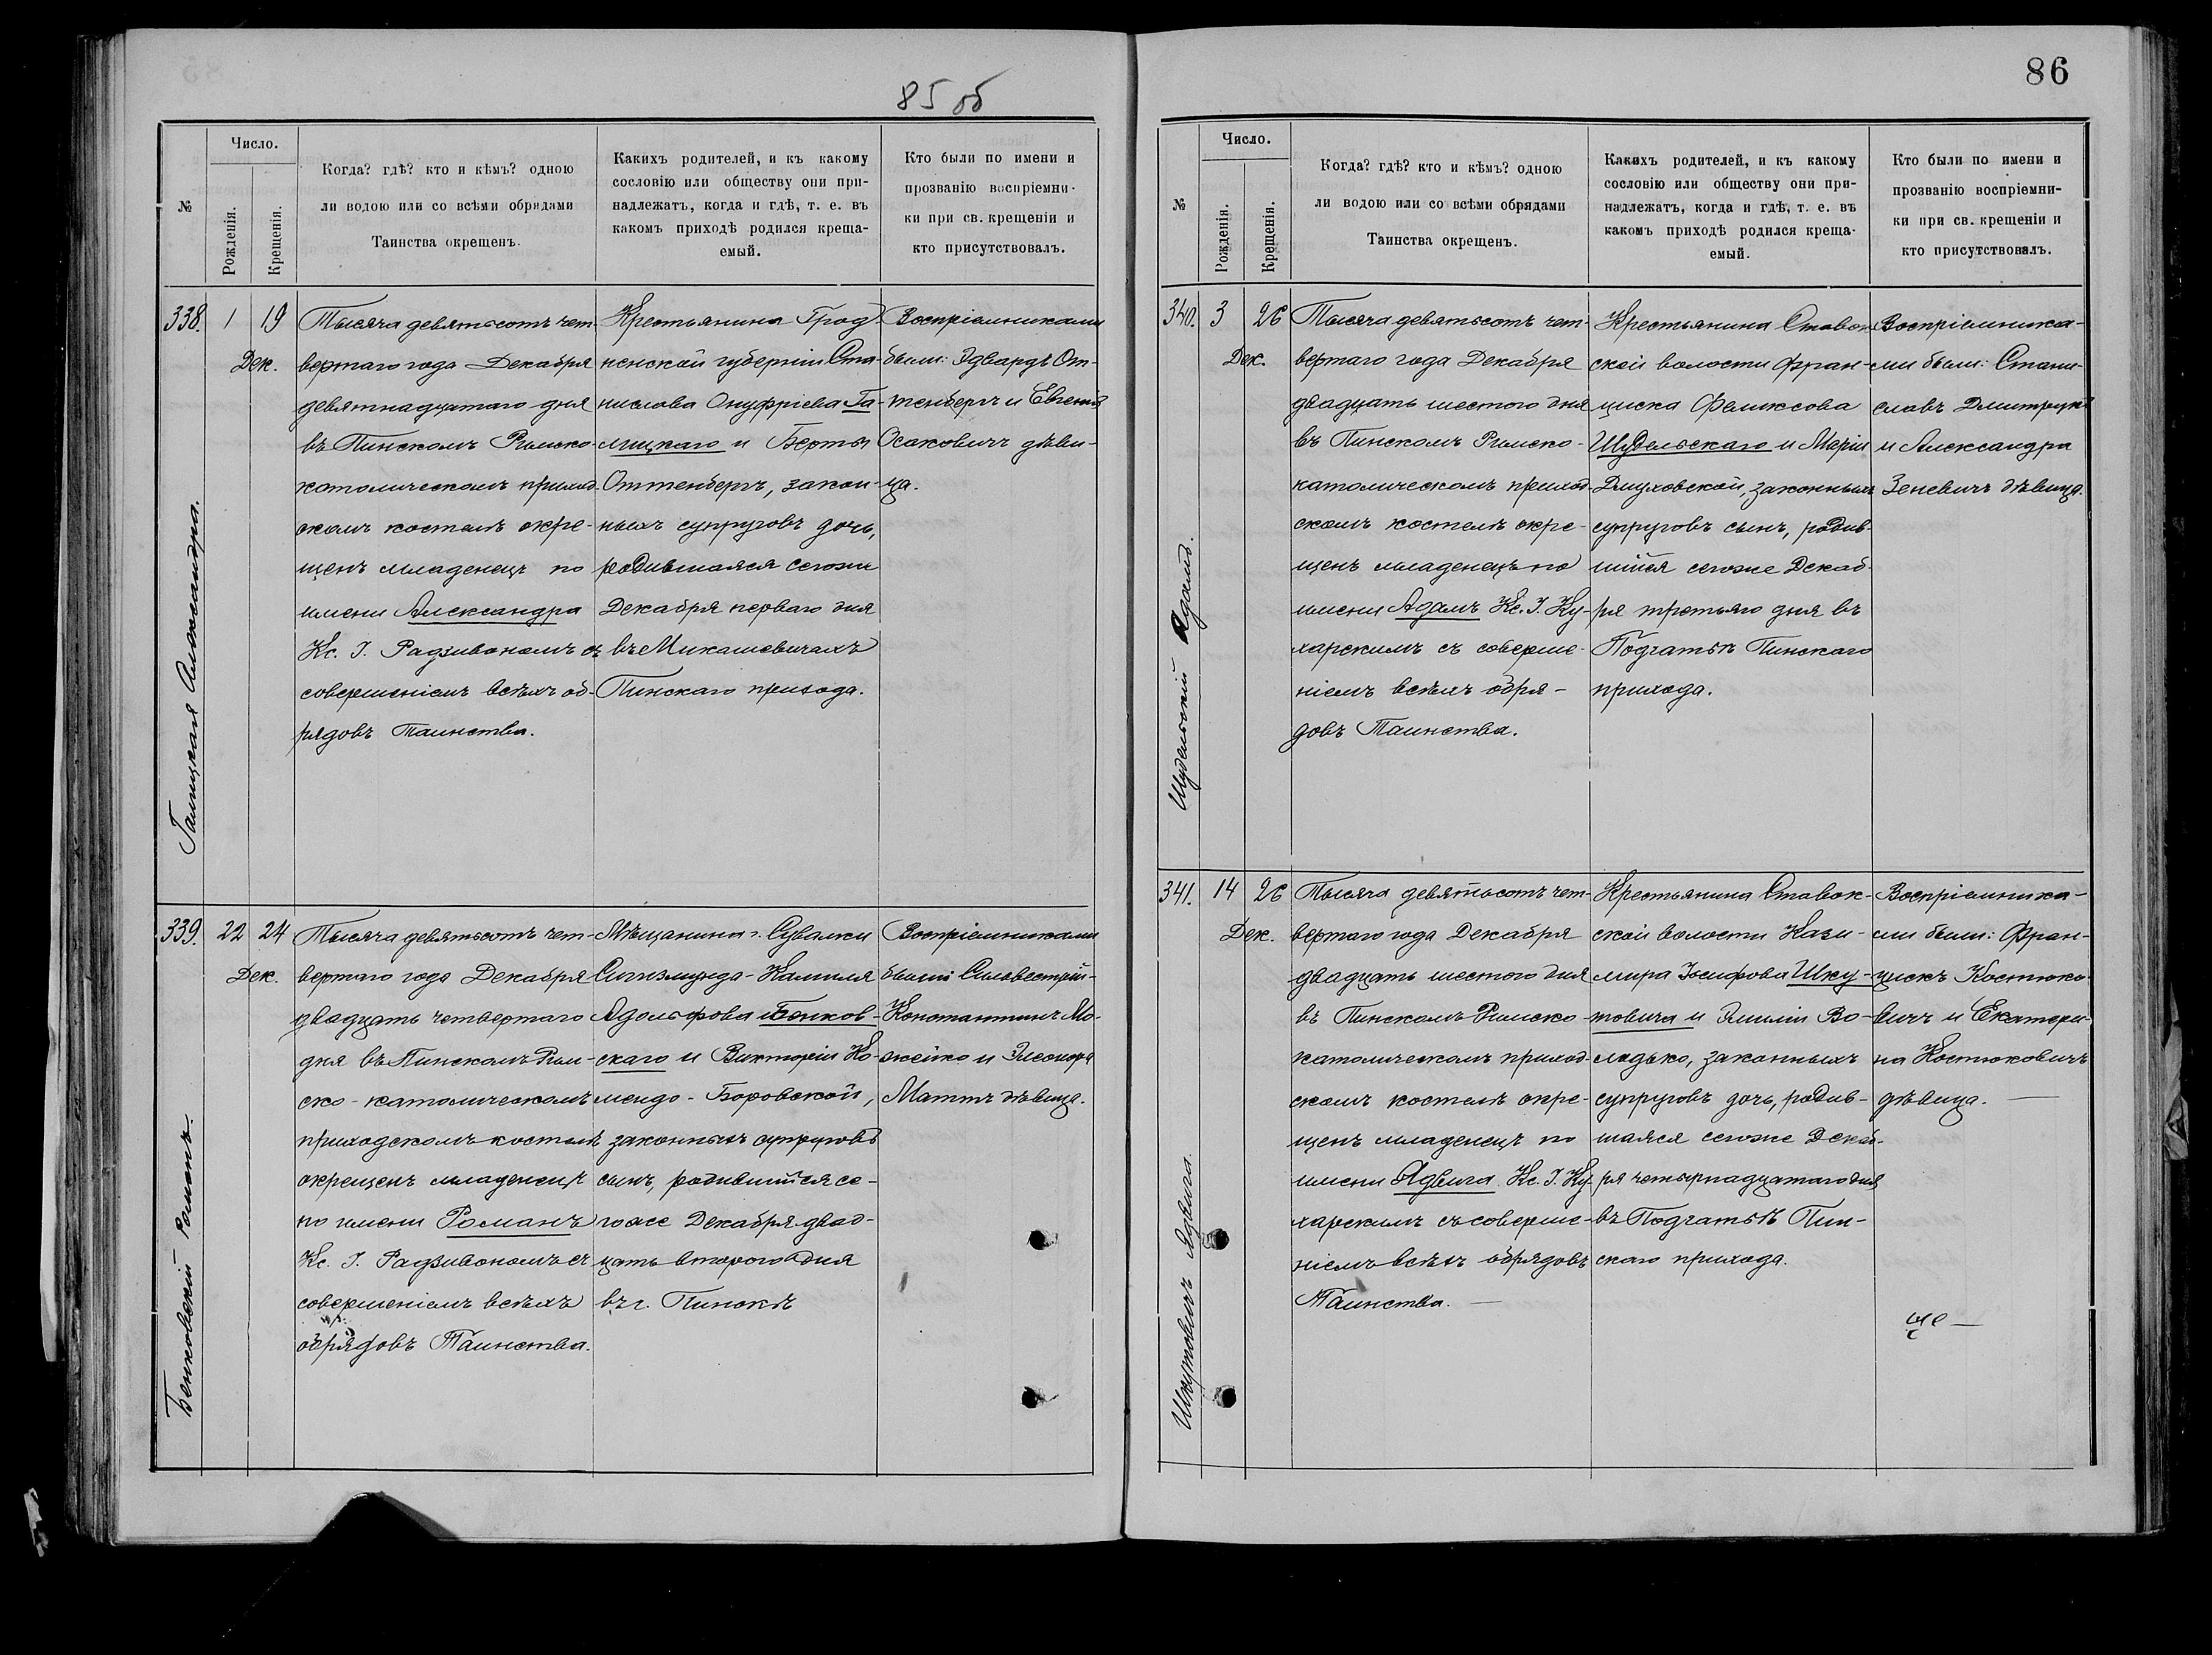 85 об
№
Число.
Рожденія.
Крещенія.
Когда? гдѣ? кто и кѣмъ? одною
ли водою или со всѣми обрядами
Таинства окрещенъ.
Какихъ родителей, и къ какому
сословію или обществу они при-
надлежатъ, когда и гдѣ, т. е. въ
какомъ приходѣ родился креща-
емый.
Кто были по имени и
прозванію воспріемни-
ки при св. крещеніи и
кто присутствовалъ.
338.
1
19
Дек.
Галицкая Александра.
Тысяча девятьсотъ чет-
вертаго года Декабря
девятнадцатаго дня
въ Пинскомъ Римско-
католическомъ приход-
скомъ костелѣ окре-
щенъ младенецъ по
имени Александра
Кс. І. Радзивономъ съ
совершеніемъ всѣхъ об-
рядовъ Таинства.
Крестьянина Грод-
ненской губерніи Ста-
нислава Онуфріева Га-
лицкаго и Берты
Оттенбергъ, закон-
ныхъ супруговъ дочь,
родившаяся сегоже
Декабря перваго дня
въ Микашевичахъ
Пинскаго прихода.
Воспріемниками
были: Эдвардъ От-
тенбергъ и Евгенія
Осаковичъ дѣви-
ца.
339.
22
24
Дек.
Бенковскій Романъ.
Тысяча девятьсотъ чет-
вертаго года Декабря
двадцать четвертаго
дня въ Пинскомъ Рим-
ско-католическомъ
приходскомъ костелѣ
окрещенъ младенецъ
по имени Романъ
Кс. І. Радзивономъ съ
совершеніемъ всѣхъ
обрядовъ Таинства.
Мѣщанина г. Сувалки
Сигизмунда-Камиля
Адольфова Бенков-
скаго и Викторіи Ко-
мендо-Боровской,
законныхъ супруговъ
сынъ, родившійся се-
гоже Декабря двад-
цать второго дня
въ г. Пинскѣ
Воспріемниками
были Сильвестрій-
Константинъ Мо-
жейко и Элеонора
Маттъ дѣвица.
86
№
Число.
Рожденія.
Крещенія.
Когда? гдѣ? кто и кѣмъ? одною
ли водою или со всѣми обрядами
Таинства окрещенъ.
Какихъ родителей, и къ какому
сословію или обществу они при-
надлежатъ, когда и гдѣ, т. е. въ
какомъ приходѣ родился креща-
емый.
Кто были по имени и
прозванію воспріемни-
ки при св. крещеніи и
кто присутствовалъ.
340.
3
26
Дек.
Шудельскій Адамъ.
Тысяча девятьсотъ чет-
вертаго года Декабря
двадцать шестого дня
въ Пинскомъ Римско-
католическомъ приход-
скомъ костелѣ окре-
щенъ младенецъ по
имени Адамъ Кс. І. Ку-
харскимъ съ соверше-
ніемъ всѣхъ обря-
довъ Таинства.
Крестьянина Ставок-
ской волости Фран-
циска Феликсова
Шудельскаго и Маріи
законныхъ
супруговъ сынъ, родив-
шійся сегоже Декаб-
ря третьяго дня въ
Погатьѣ Пинскаго
прихода.
Воспріемника-
ми были: Стани-
славъ
и Александра
Зеневичъ дѣвица.
341.
14
26
Дек.
Шкутовичъ Ядвига.
Тысяча девятьсотъ чет-
вертаго года Декабря
двадцать шестого дня
въ Пинскомъ Римско-
католическомъ приход-
скомъ костелѣ окре-
щенъ младенецъ по
имени Ядвига Кс. І. Ку-
харскимъ съ соверше-
ніемъ всѣхъ обрядовъ
Таинства.
Крестьянина Ставок-
ской волости Кази-
мира Іосифова Шку-
товича и Эмиліи Во-
законныхъ
супруговъ дочь, родив-
шаяся сегоже Декаб-
ря четырнадцатаго дня
въ Погатьѣ Пин-
скаго прихода.
Воспріемника-
ми были: Фран-
цискъ Костюко-
вичъ и Екатери-
на Костюковичъ
дѣвица.